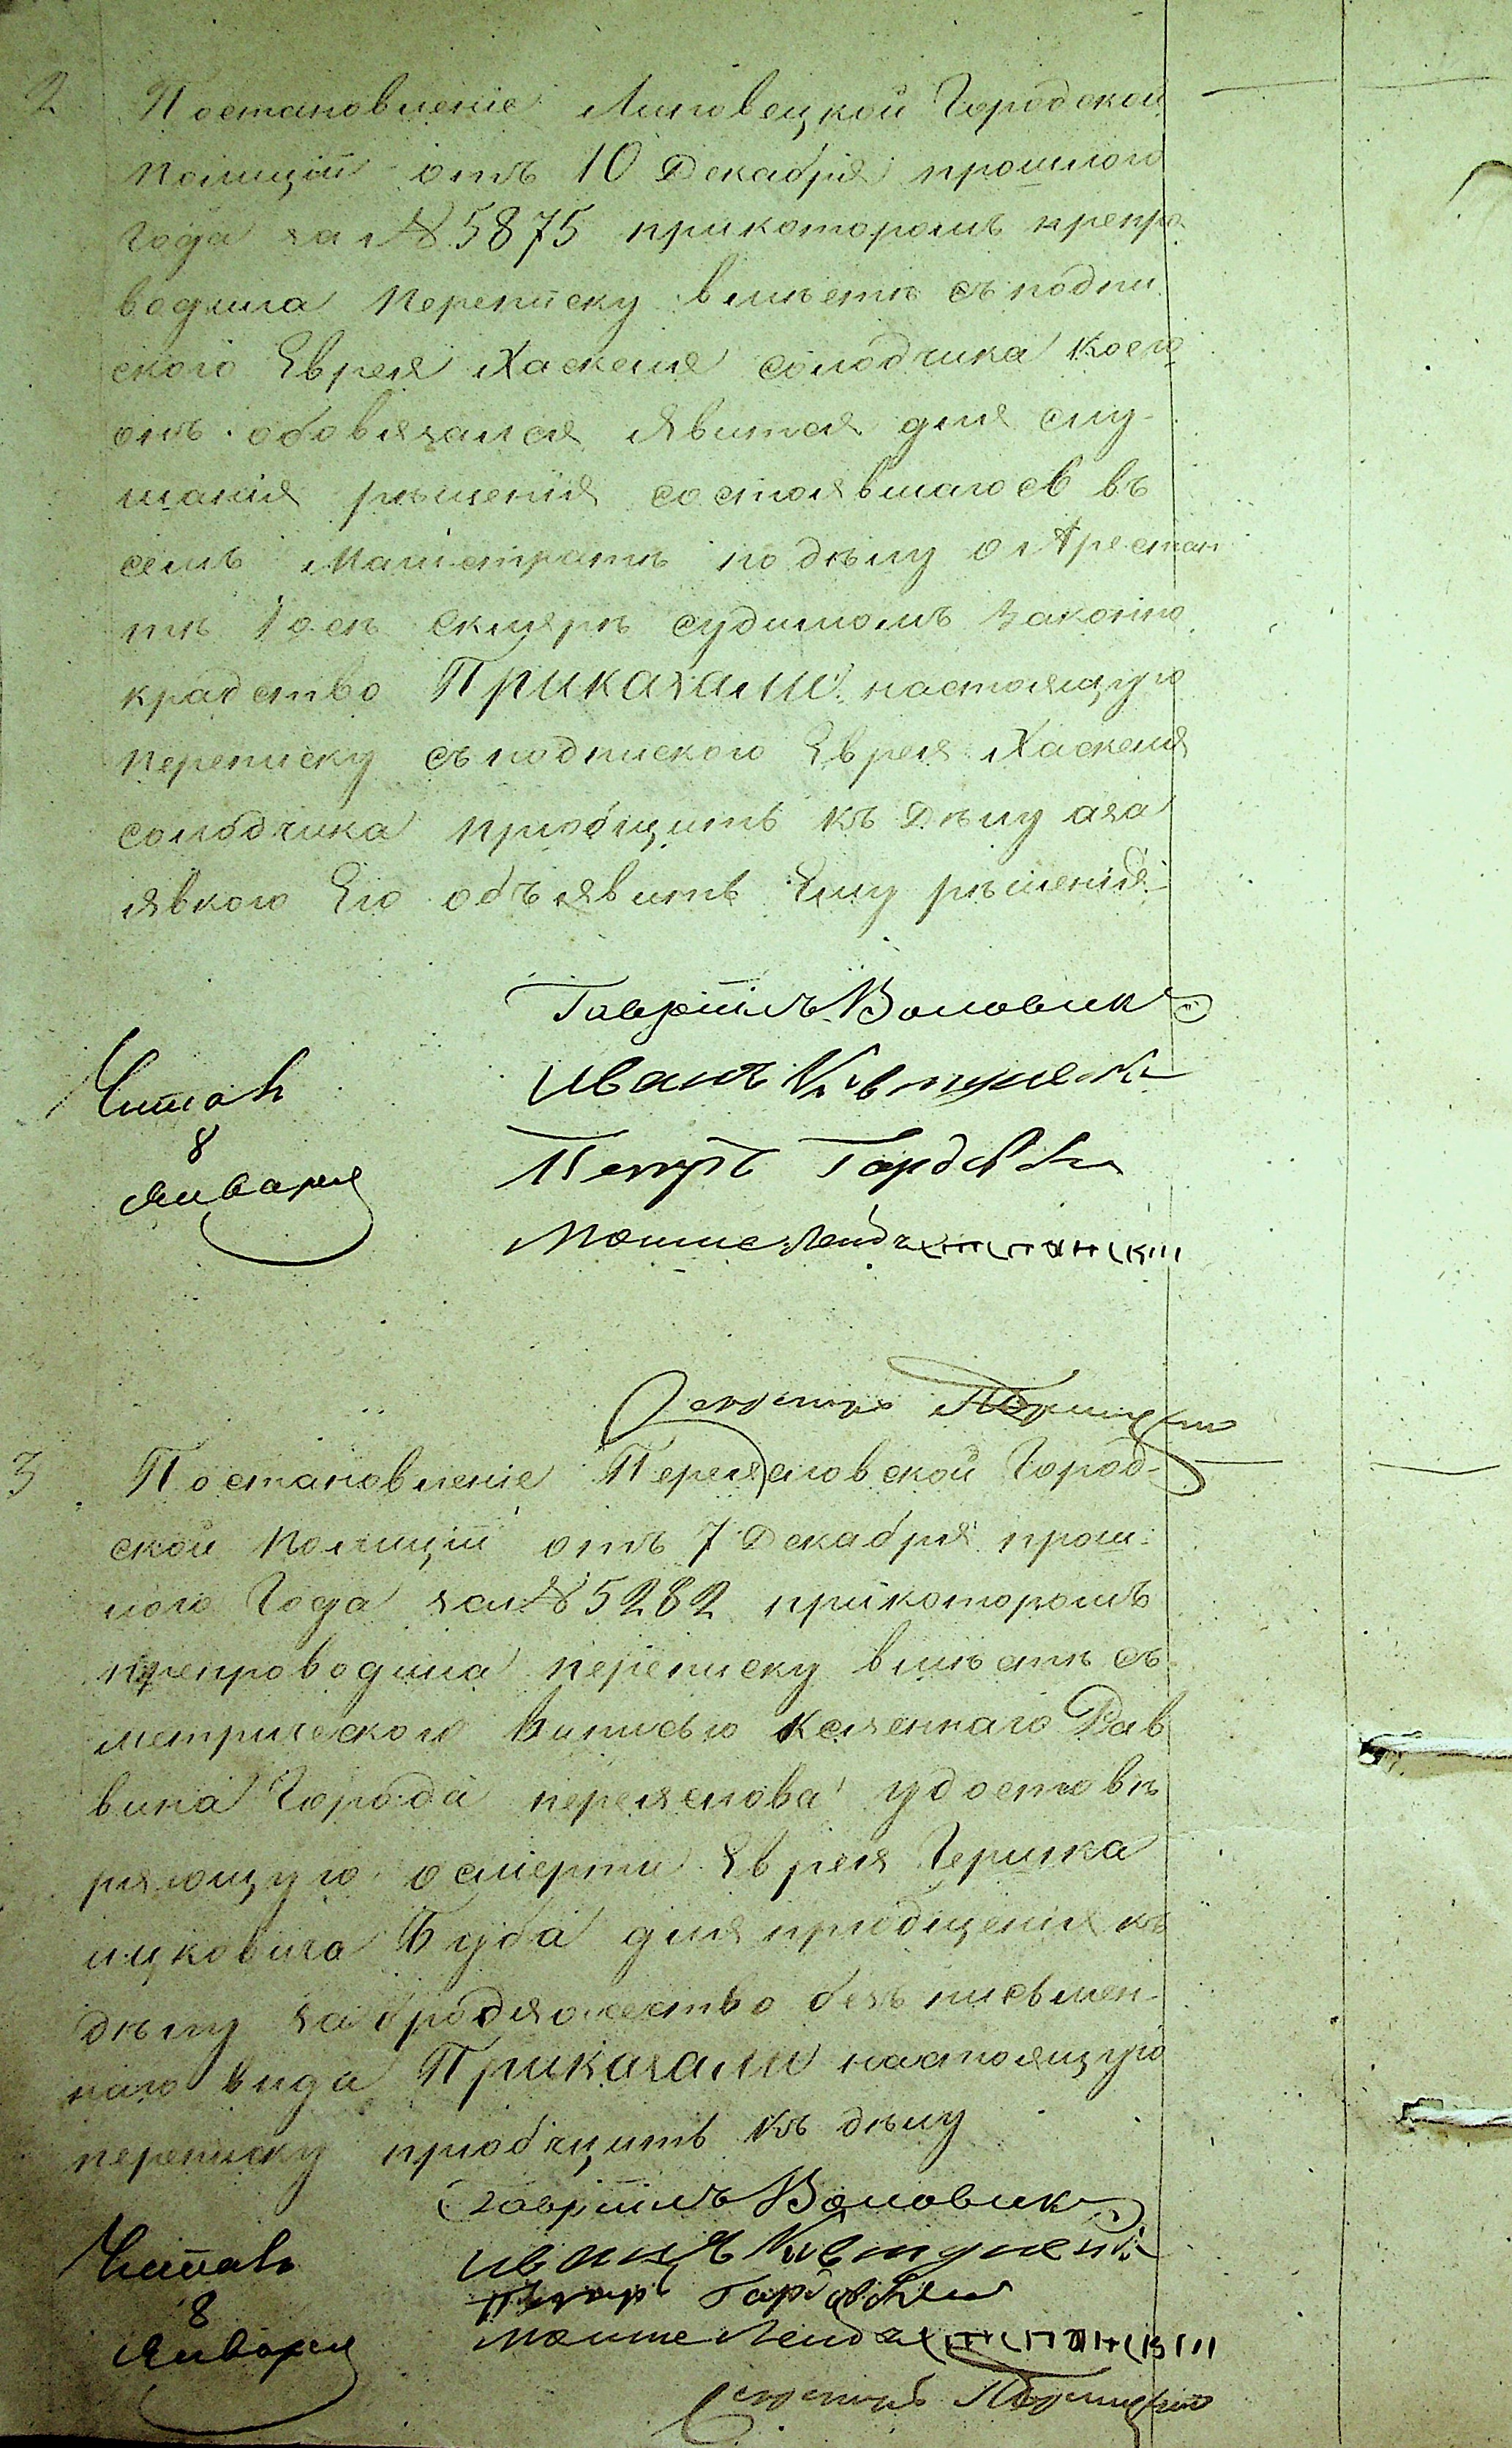 2
Постановленіе Липовецкой Городской
Полиціи отъ 10 Декабря прошлого
Года за № 5875 прикоторомъ препро
водила Переписку вместе съ подпи
скою Еврея Хаскеля солодчика коею
онъ обовязался явится для слу-
шанія решенія состоявшагося въ
семъ Магистрате по делу о Арестан
те Іосе Скляре судимомъ законо
крадство Приказали настоящую
Переписку съ подпискою Еврея Хаскеля
солодчика пріобщить къ Делу аза
явкою Его объявить Ему решенія
Гавріилъ Воловик
Иванъ
Читалъ
8
Января
Петръ
Мошне
Секретарь
3
Постановленіе Переясловской Город-
ской Полиціи отъ 7 Декабря прош-
лого Года за № 5282 прикоторомъ
препроводила переписку вместе съ
метрическою выписью казеннаго Рав
вина Города переяслова удостове
ряющую о смерти Еврея Гершка
ицковича Буба для пріобщенія къ
делу за бродяжество безъ письмен-
наго вида Приказали настоящую
переписку пріобщить къ делу
Гавріилъ Воловик
Читалъ
8
Января
Иванъ
Петръ
Мошне
Секретарь